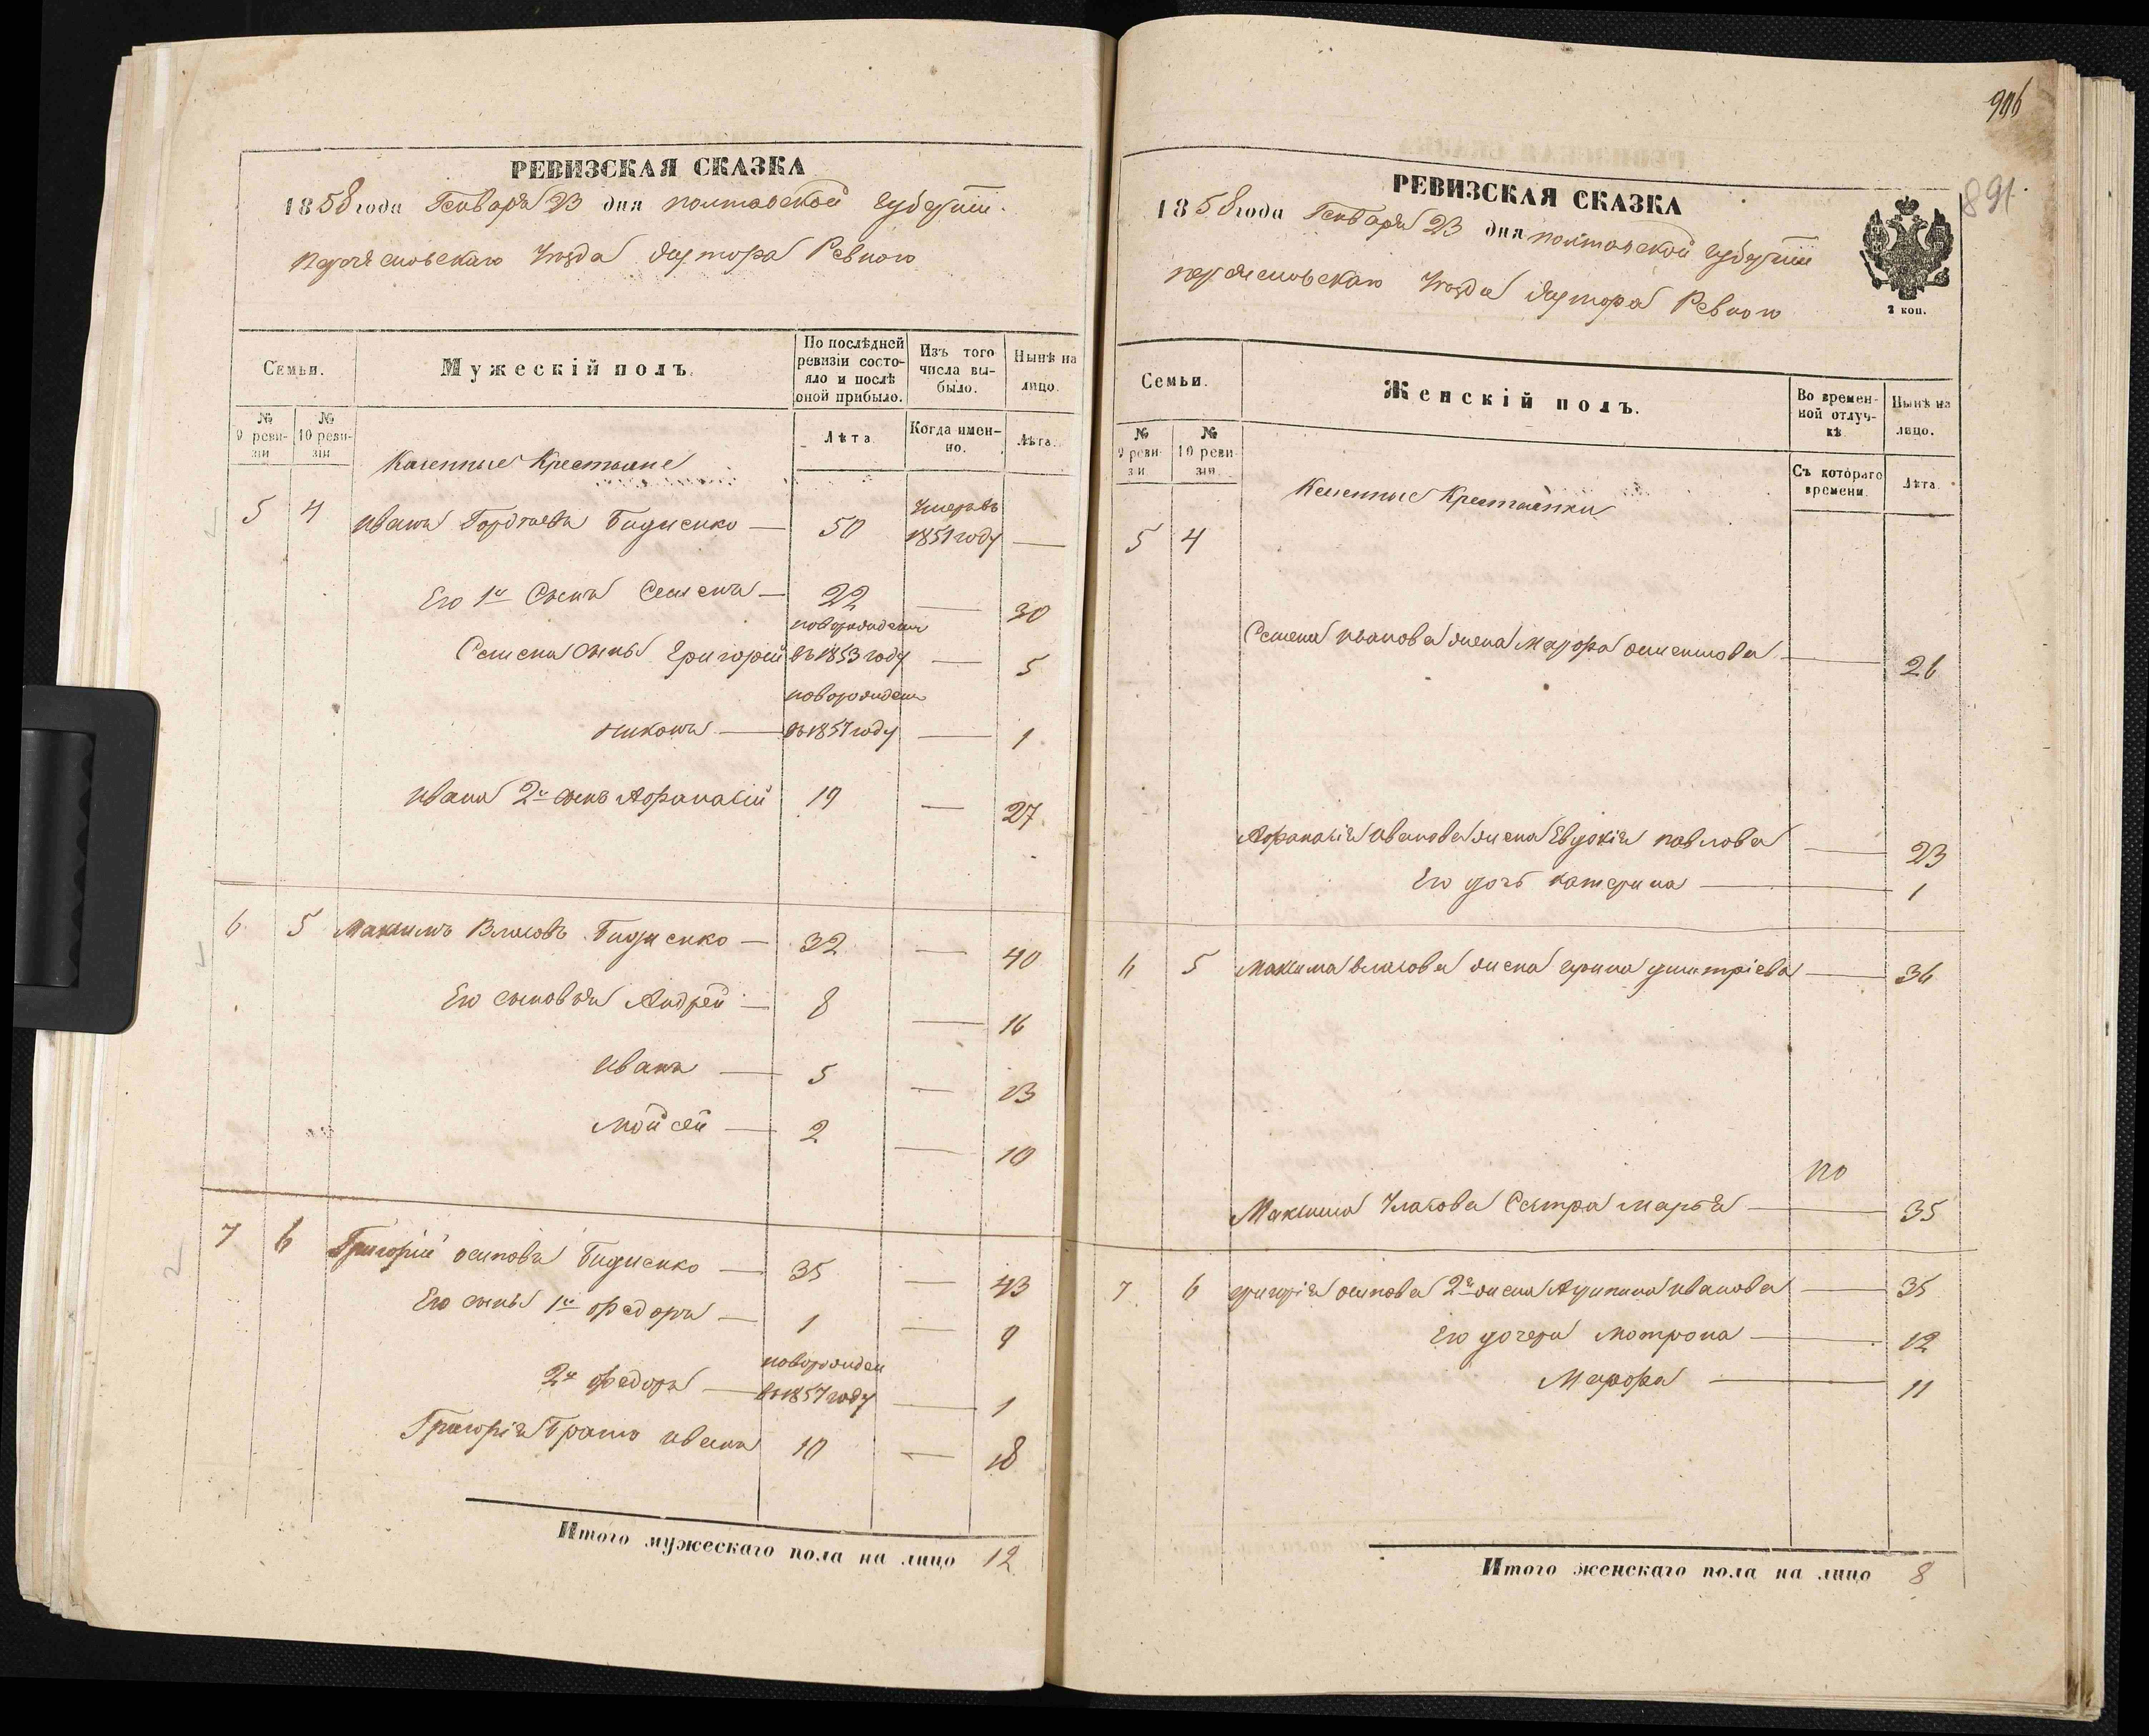 РЕВИЗСКАЯ СКАЗКА
1858 года Генваря 23 дня полтавской губернии
переясловскаго Уезда хутора Ревного
Семьи.
Мужескій полъ.
По послѣдней ревизіи состояло и послѣ оной прибыло.
Изъ того числа выбыло.
Нынѣ на лицо.
№ 9 ревизіи
№ 10 ревизіи
Лѣта
Когда именно.
Лѣта.
Казенные Крестьяне
5 4 иванъ Гордѣевъ 50 Умеръ въ 1851 году —
Его 1й Сынъ Семенъ — 22 — 30
Семена сынъ Григорій новорожденъ въ 1853 году — 5
никонъ — новорожденъ въ 1857 году — 1
ивана 2й сынъ Афанасій 19 — 27
6 5 Максимъ Власовъ — 32 — 40
Его сыновья Андрей — 8 — 16
иванъ — 5 — 13
мойсей — 2 — 10
7 6 Григорій осиповъ — 35 — 43
Его сынъ 1й федоръ — 1 — 9
2й федоръ — новорожден въ 1857 году — 1
Григорія Братъ иванъ 10 — 18
Итого мужескаго пола на лицо 12
906
891
РЕВИЗСКАЯ СКАЗКА
1858 года Генваря 23 дня полтавской губернии
переясловскаго Уезда хутора Ревного
2 коп.
Семьи.
Женскій полъ.
Во временной отлучкѣ
Нынѣ на лицо.
№ 9 ревизіи
№ 10 ревизія
Съ котораго времени.
Лѣта.
Казенные Крестьянки
5 4
Семена иванова жена Марфа — 26
Афанасія иванова жена Евдокія павлова — 23
Его дочь катерина — 1
6 5 Максима власова жена ирина дмитріева — 36
Максима Власова Сестра марья — 35
7 6 григорія осипова 2я жена иванова — 35
Его дочери мотрона — 12
Марфа — 11
Итого женскаго пола на лицо 8